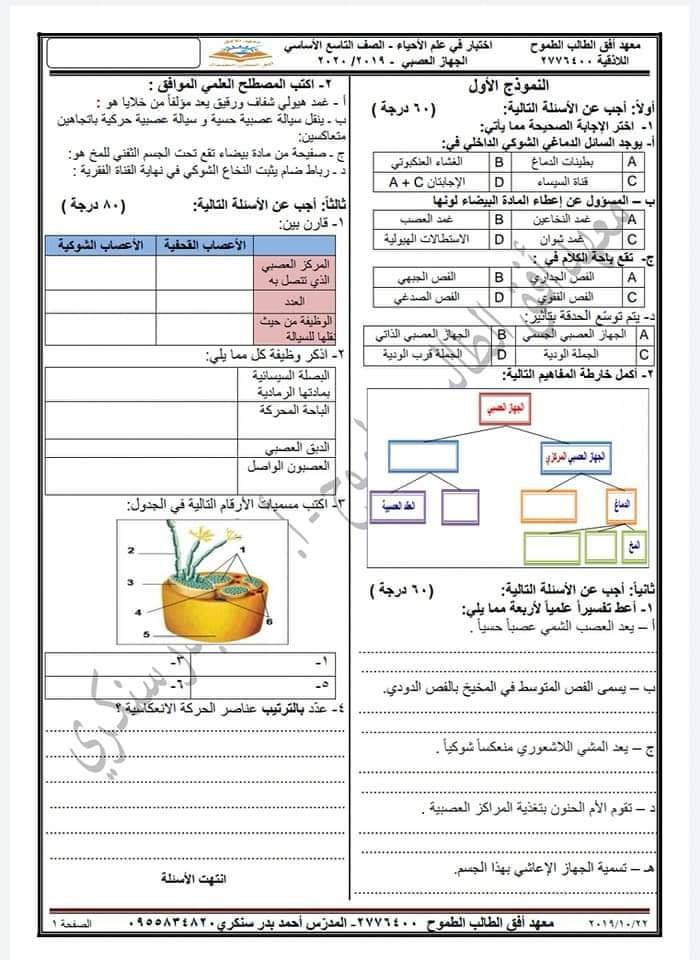 معهد أفق الطالب الطموح
اللاذقية ٢٧٧٦٤٠٠
اختبار في علم الأحياء - الصف التاسع الأساسي
الجهاز العصبي - ٢٠١٩/ ٢٠٢٠
النموذج الأول
أولاً: أجب عن الأسئلة التالية: (٦٠ درجة)
١- اختر الإجابة الصحيحة مما يأتي:
أ- يوجد السائل الدماغي الشوكي الداخلي في:
A بطينات الدماغ B الغشاء العنكبوتي
C قناة السيساء D الإجابتان A + C
ب – المسؤول عن إعطاء المادة البيضاء لونها
A غمد النخاعين B غمد العصب
C غمد شوان D الاستطالات الهيولية
ج- تقع باحة الكلام في :
A الفص الجداري B الفص الجبهي
C الفص القفوي D الفص الصدغي
د- يتم توسّع الحدقة بتأثير:
A الجهاز العصبي الجسمي B الجهاز العصبي الذاتي
C الجملة الودية D الجملة قرب الودية
٢- أكمل خارطة المفاهيم التالية:
الجهاز العصبي
الجهاز العصبي المركزي
الدماغ
العقد العصبية
المخ
ثانياً: أجب عن الأسئلة التالية: (٦٠ درجة)
١- أعط تفسيراً علمياً لأربعة مما يلي:
أ – يعد العصب الشمي عصباً حسياً .
ب – يسمى الفص المتوسط في المخيخ بالفص الدودي.
ج – يعد المشي اللاشعوري منعكساً شوكياً .
د – تقوم الأم الحنون بتغذية المراكز العصبية .
هـ – تسمية الجهاز الإعاشي بهذا الجسم.
٢- اكتب المصطلح العلمي الموافق :
أ - غمد هيولي شفاف ورقيق يعد مؤلفاً من خلايا هو :
ب - ينقل سيالة عصبية حسية و سيالة عصبية حركية باتجاهين
متعاكسين:
ج - صفيحة من مادة بيضاء تقع تحت الجسم الثفني للمخ هو:
د - رباط ضام يثبت النخاع الشوكي في نهاية القناة الفقرية :
ثالثاً: أجب عن الأسئلة التالية: (٨٠ درجة )
١- قارن بين:
الأعصاب القحفية الأعصاب الشوكية
المركز العصبي
الذي تتصل به
العدد
الوظيفة من حيث
نقلها للسيالة
٢- اذكر وظيفة كل مما يلي:
البصلة السيسائية
بمادتها الرمادية
الباحة المحركة
الدبق العصبي
العصبون الواصل
٣- اكتب مسميات الأرقام التالية في الجدول:
1
2
3
4
5
6
١- ٣-
٥- ٦-
٤- عدّد بالترتيب عناصر الحركة الانعكاسية ؟
انتهت الأسئلة
معهد أفق الطالب الطموح - أ. أحمد بدر سنكري
٢٠١٩/١٠/٢٢ معهد أفق الطالب الطموح ٢٧٧٦٤٠٠- المدرّس أحمد بدر سنكري ٠٩٥٥٨٣٤٨٢٠ الصفحة ١